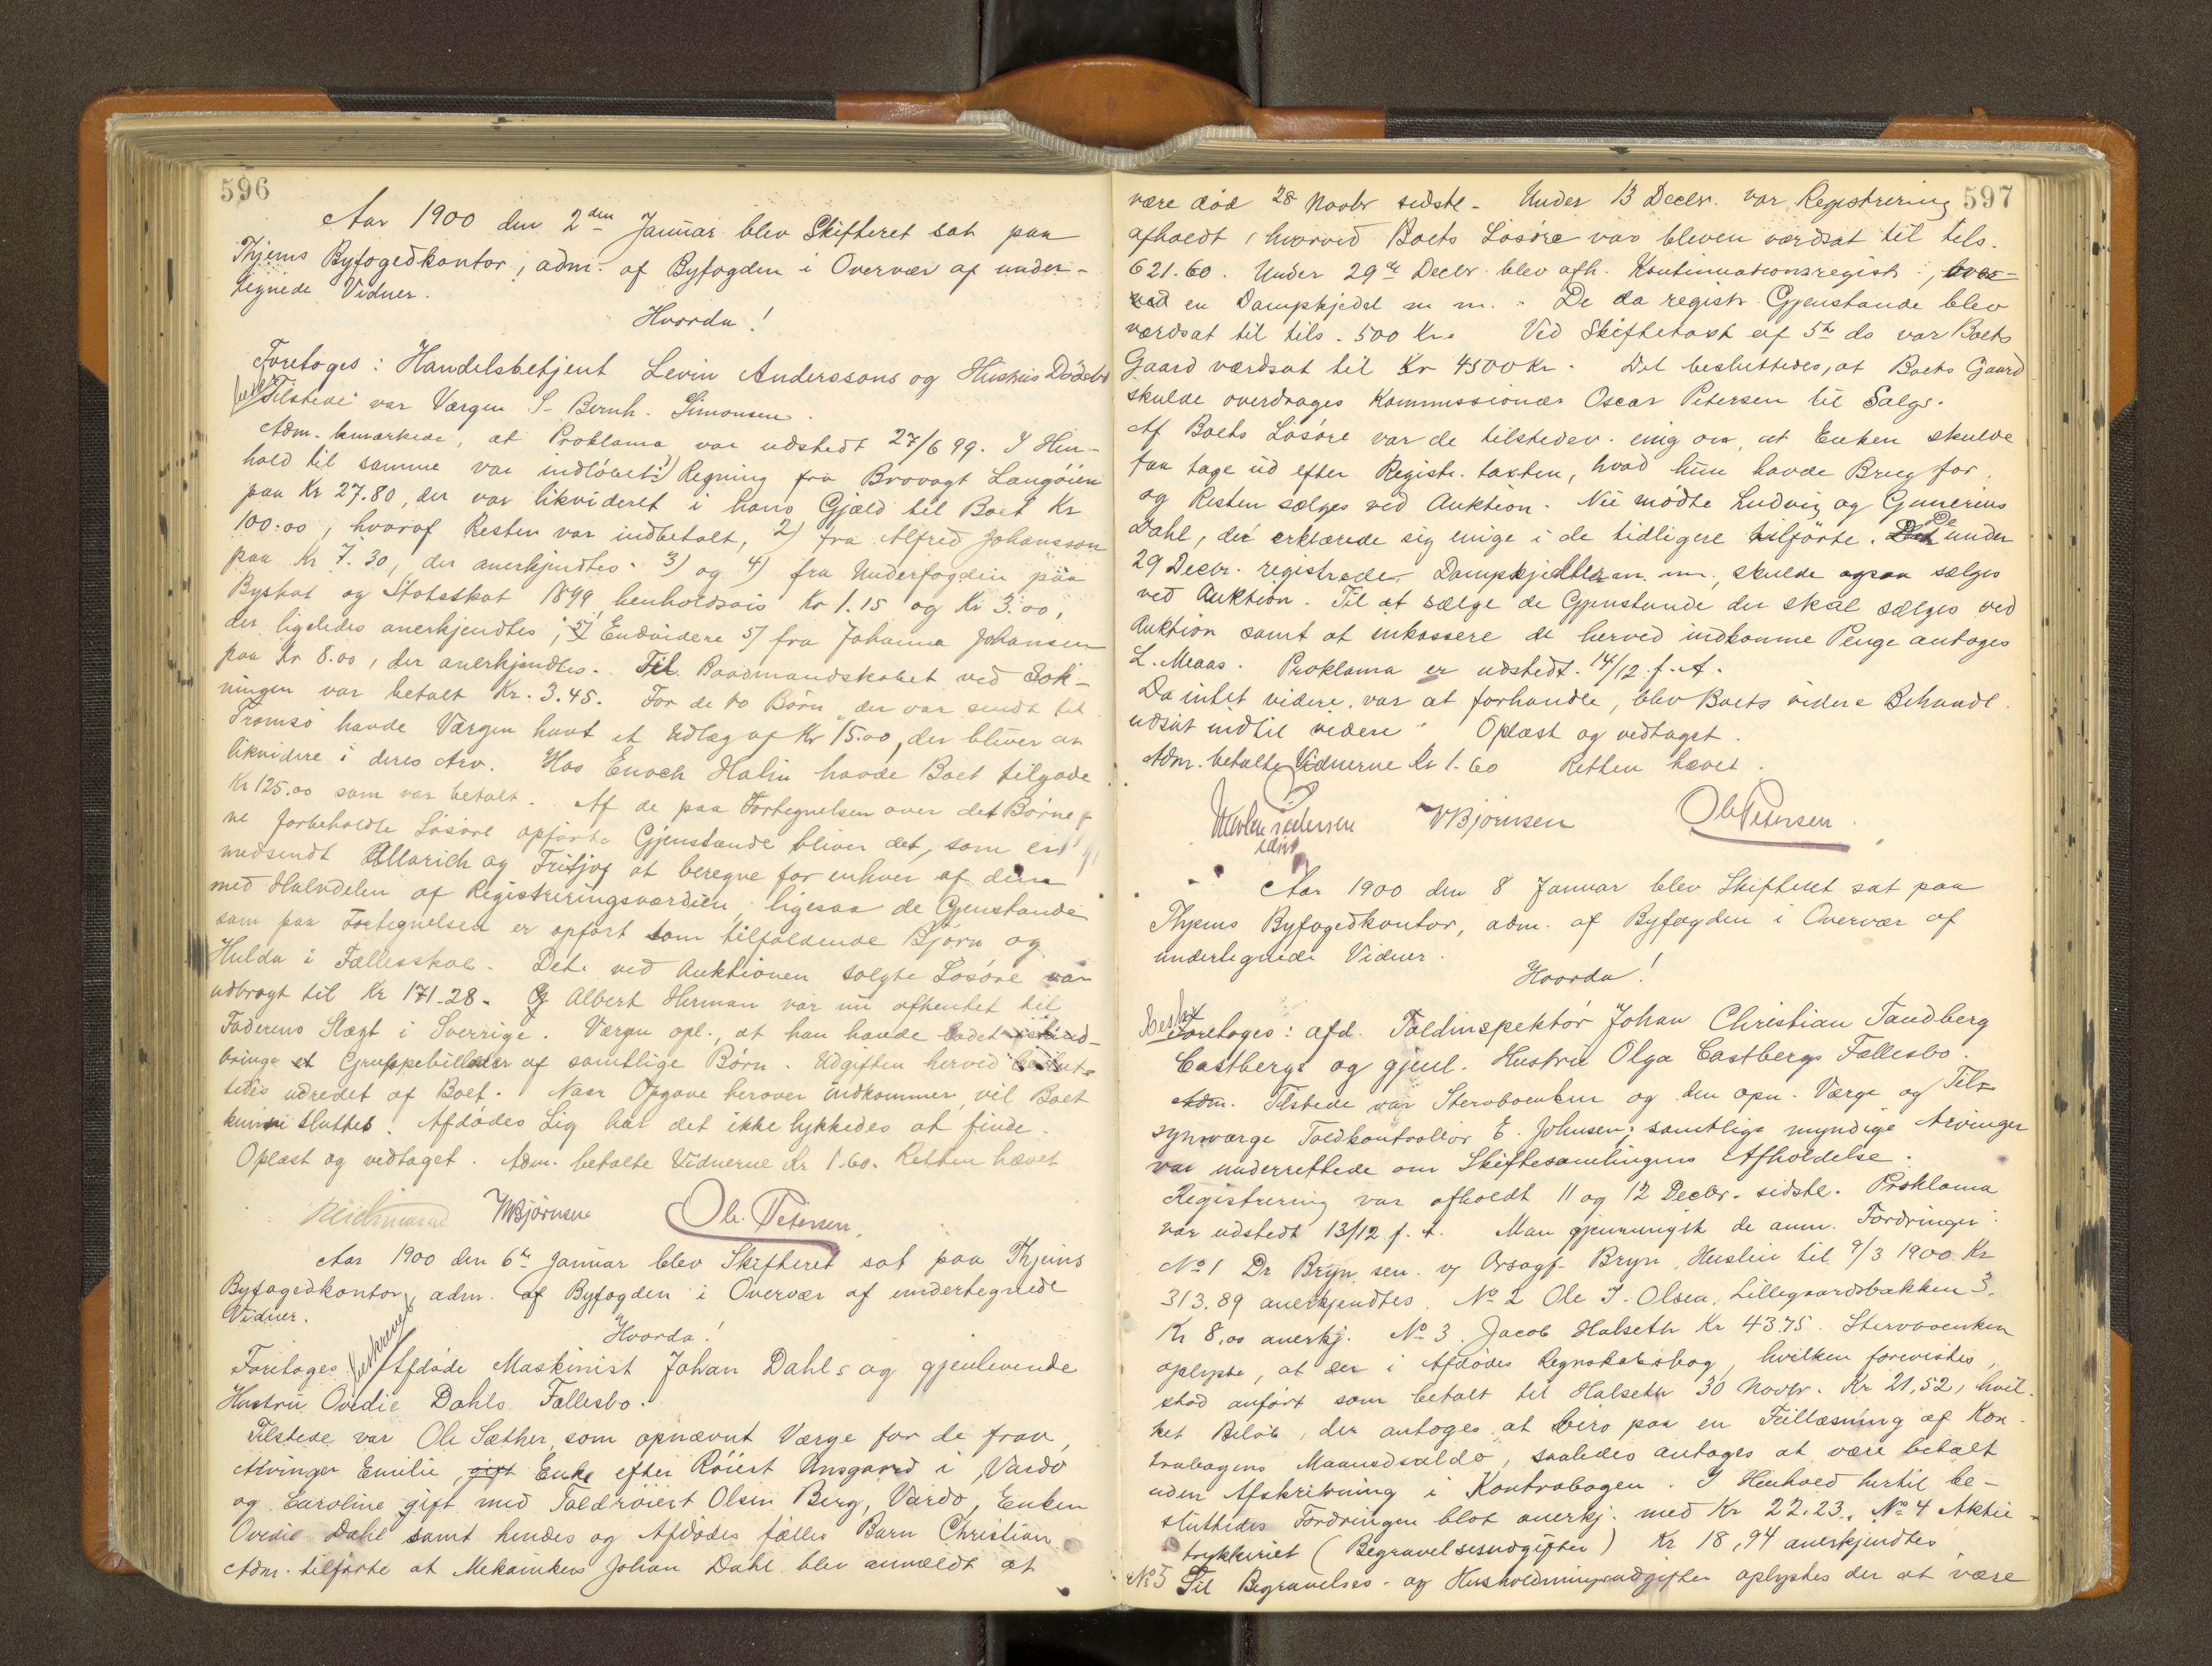 596
Aar 1900 den 2den Januar blev Skifteret sat paa
Thjems Byfogedkontor, adm. af Byfogden i Overvær af under-
tegnede Vidner.
Hvorda!
Foretoges: Handelsbetjent Levin Anderssons og Hustrus Dødsbo
Tilstede var Værgen S. Bernh. Simonsen.
Adm. bemærkede, at Proklama var udstedt 27/6 99. I Hen-
hold til samme var indløbet: 1) Regning fra Brovagt Langöien
paa Kr 27.80, der var likvideret i hans Gjæld til Boet Kr
100.00, hvoraf Resten var indbetalt, 2) fra Alfred Johansson
paa Kr 7.30, der anerkjendtes. 3) og 4) fra Underfogden paa
Byskat og Statsskat 1899 henholdsvis Kr 1.15 og Kr 3.00,
der ligeledes anerkjendtes; Endvidere 5) fra Johanna Johansen
paa Kr 8.00, der anerkjendtes. Til Baadmandskabet ved Sok-
ningen var betalt Kr. 3.45. For de to Børn, der var sendt til
Tromsø havde Værgen havt et Udlæg af Kr 15.00, der bliver at
likvidere i deres Arv. Hos Enoch Halin havde Boet tilgode
Kr 125.00 som var betalt. Af de paa Fortegnelsen over det Børne-
ne forbeholdte Løsøre opførte Gjenstande bliver det, som er
medsendt Allarich og Fritjof at beregne for enhver af dem
med Halvdelen af Registreringsværdien, ligesaa de Gjenstande
som paa Fortegnelsen er opført som tilfaldende Bjørn og
Hulda i Fællesskab. Det ved Auktionen solgte Løsøre var
udbragt til Kr 171.28. Albert Herman var nu afhentet til
Faderens Slægt i Sverrige. Værgen opl., at han havde ladet
bringe et Gruppebillede af samtlige Børn. Udgiften herved beslut-
tedes udredet af Boet. Naar Opgave herover indkommer, vil Boet
kunne sluttes. Afdødes Lig har det ikke lykkedes at finde.
Oplæst og vedtaget. Adm. betalte Vidnerne Kr 1.60. Retten hævet
WBjørnsen Ole Petersen
Aar 1900 den 6te Januar blev Skifteret sat paa Thjems
Byfogedkontor, adm. af Byfogden i Overvær af undertegnede
Vidner.
Hvorda!
Foretoges beskrevet Afdøde Maskinist Johan Dahls og gjenlevende
Hustru Ovidie Dahls Fællesbo.
Tilstede var Ole Sæther, som opnævnt Værge for de frav.
Arvinger Emilie, gift Enke efter Røiert Ansgaard i Vardø
og Caroline gift med Toldrøiert Olsen Berg, Vardø, Enken
Ovidie Dahl samt hendes og Afdødes fælles Barn Christian.
Adm. tilførte at Mekanikus Johan Dahl blev anmeldt at
597
være død 28 Novbr sidstl. Under 13 Decbr. var Registrering
afholdt, hvorved Boets Løsøre var bleven værdsat til tils.
621.60. Under 29de Decbr. blev afh. Kontinuationsregistr., hvor-
ved en Dampkjedel m m. De da registr. Gjenstande blev
værdsat til tils. 500 Kr. Ved Skiftetaxt af 5te ds var Boets
Gaard værdsat til Kr 4500 Kr. Det besluttedes, at Boets Gaard
skulde overdrages Kommissionær Oscar Petersen til Salgs.
Af Boets Løsøre var de tilstedev. enig om, at Enken skulde
faa tage ud efter Registr. taxten, hvad hun havde Brug for.
og Resten sælges ved Auktion. Nu mødte Ludvig og Gunerius
Dahl, der erklærede sig enige i de tidligere tilførte. De under
29 Decbr. registrede Dampkjedler m. m. skulde ogsaa sælges
ved Auktion. Til at sælge de Gjenstande der skal sælges ved
Auktion samt at inkassere de herved indkomne Penge antoges
L. Meaas. Proklama er udstedt 14/12 f. A.
Da intet videre var at forhandle, blev Boets videre Behandl.
udsat indtil videre. Oplæst og vedtaget.
Adm. betalte Vidnerne Kr 1.60 Retten hævet.
WBjørnsen Ole Petersen
Aar 1900 den 8 Januar blev Skifteret sat paa
Thjems Byfogedkontor, adm. af Byfogden i Overvær af
undertegnede Vidner.
Hvorda!
Foretoges: afd. Toldinspektør Johan Christian Tandberg
Castbergs og gjenl. Hustru Olga Castbergs Fællesbo.
Adm. Tilstede var Stervboenken og den opn. Værge og Til-
synsværge Toldkontrollør E. Johnsen; samtlige myndige Arvinger
var underrettede om Skiftesamlingens Afholdelse.
Registrering var afholdt 11 og 12 Decbr. sidstl. Proklama
var udstedt 13/12 f. A. Man gjennemgik de anm. Fordringer:
No 1 Dr Bryn sen. v/ Orsagf. Bryn, Husleie til 9/3 1900 Kr
313.89 anerkjendtes. No 2 Ole J. Olsen, Lillegaardsbakken 3.
Kr 8.00 anerkj. No 3. Jacob Halseth Kr 43.75. Stervboenken
oplyste, at der i Afdødes Regnskabsbog, hvilken forevistes,
stod anført som betalt til Halseth 30 Novbr. Kr 21,52, hvil-
ket Beløb, der antoges at bero paa en Feillæsning af Kon-
trabogens Maanedsaldo, saaledes antoges at være betalt
uden Afskrivning i Kontrabogen. I Henhold hertil be-
sluttedes Fordringen blot anerkj. med Kr 22.23. No 4 Aktie-
trykkeriet (Begravelsesudgifter) Kr 18,94 anerkjendtes
No 5 Til Begravelses- og Husholdningsudgifter oplystes der at være